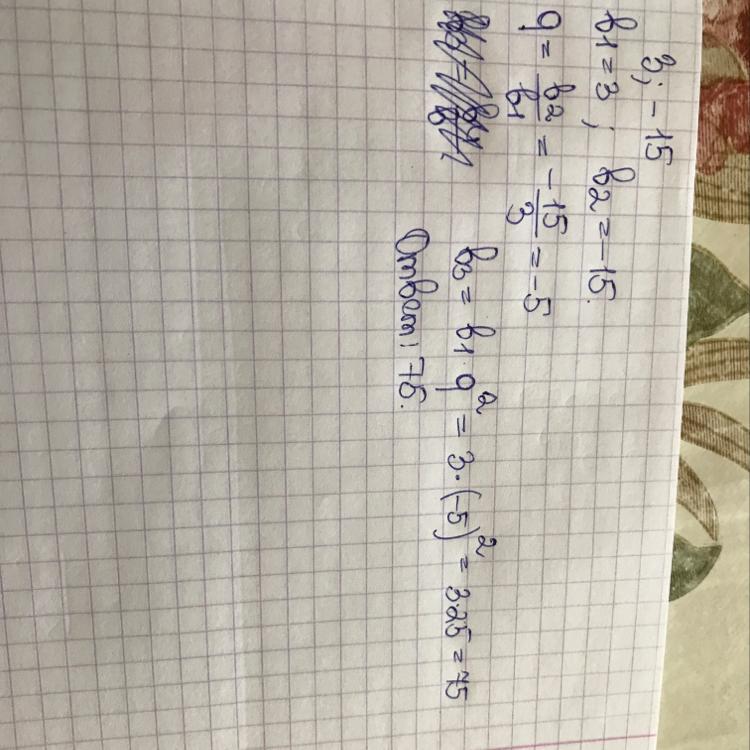 3; -15
b1 = 3; b2 = -15.
q = b2/b1 = -15/3 = -5
b3 = b1·q² = 3·(-5)² = 3·25 = 75
Ответ: 75.